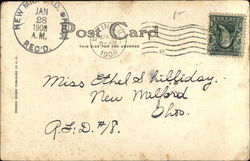 NEW MILFORD, O.
JAN
28
1908
A.M.
REC'D.
Post Card
THIS SIDE FOR THE ADDRESS
1908
Miss Ethel S.
New Milford
Ohio.
R.F.D. #8.